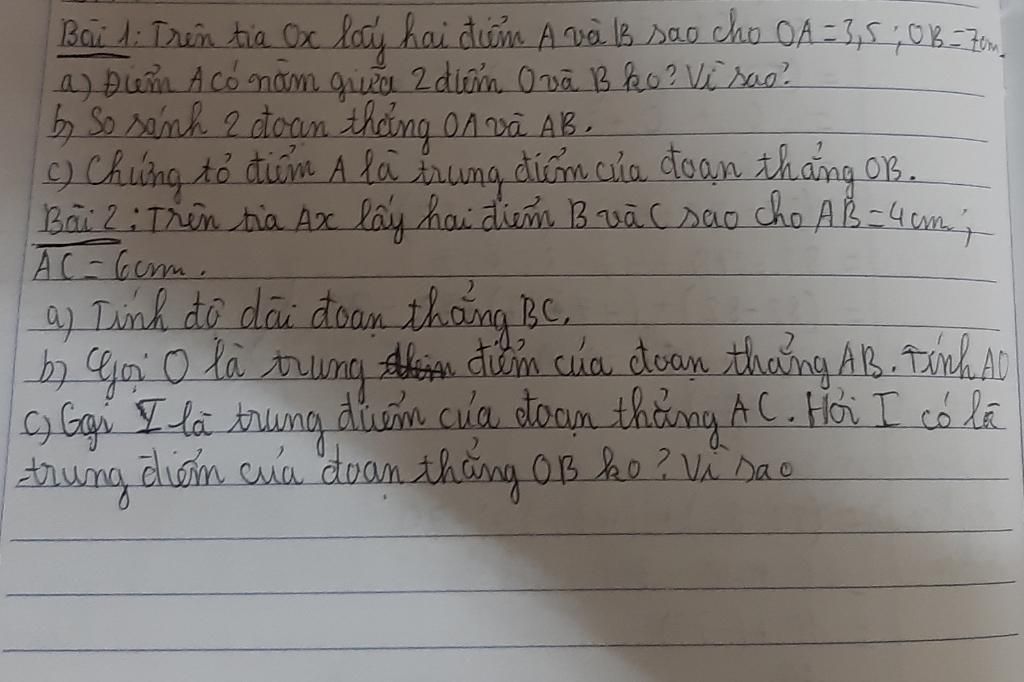 Bài 1: Trên tia Ox lấy hai điểm A và B sao cho OA = 3,5 ; OB = 7cm.
a) Điểm A có nằm giữa 2 điểm O và B ko? Vì sao?
b) So sánh 2 đoạn thẳng OA và AB.
c) Chứng tỏ điểm A là trung điểm của đoạn thẳng OB.
Bài 2: Trên tia Ax lấy hai điểm B và C sao cho AB = 4cm;
AC = 6cm.
a) Tính độ dài đoạn thẳng BC.
b) Gọi O là trung điểm của đoạn thẳng AB. Tính AO
c) Gọi I là trung điểm của đoạn thẳng AC. Hỏi I có là
trung điểm của đoạn thẳng OB ko? Vì sao